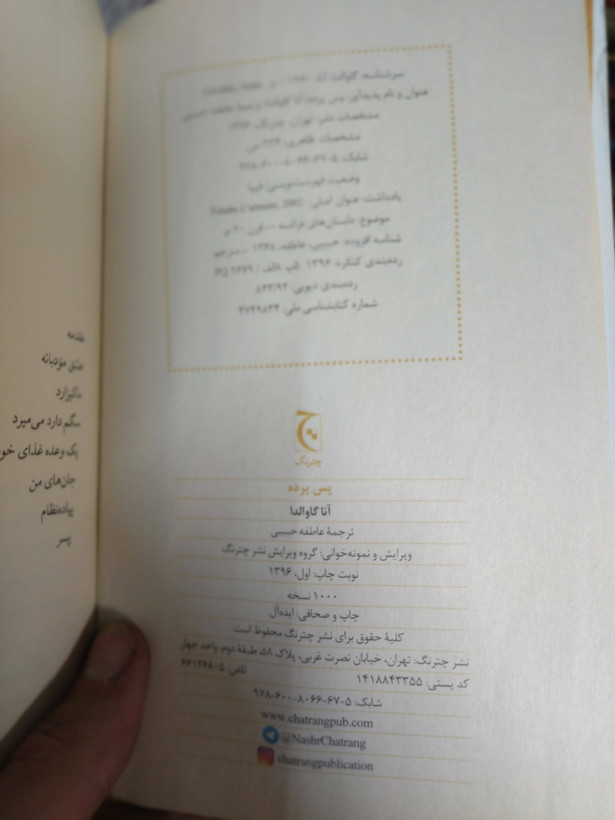 سرشناسه: گاوالدا، آنا،
عنوان و نام پدیدآور: پس پرده/ آنا گاوالدا؛ ترجمهٔ عاطفه حبیبی
مشخصات نشر: تهران: چترنگ، ۱۳۹۶
مشخصات ظاهری: ۲۲۴ ص
شابک: ۵-۶۷-۸۰۶۶-۶۰۰-۹۷۸
وضعیت فهرست‌نویسی: فیپا
یادداشت: عنوان اصلی:
موضوع: داستان‌های فرانسه — قرن ۲۰ م.
شناسه افزوده: حبیبی، عاطفه، ۱۳۶۸ – مترجم
رده‌بندی کنگره: ۱۳۹۶
رده‌بندی دیویی: ۸۴۳/۹۲
شماره کتابشناسی ملی: ۴۷۴۹۸۳۴
چترنگ
پس پرده
آنا گاوالدا
ترجمهٔ عاطفه حبیبی
ویرایش و نمونه‌خوانی: گروه ویرایش نشر چترنگ
نوبت چاپ: اول، ۱۳۹۶
۱۰۰۰ نسخه
چاپ و صحافی: ایده‌آل
کلیهٔ حقوق برای نشر چترنگ محفوظ است
نشر چترنگ: تهران، خیابان نصرت غربی، پلاک ۵۸، طبقهٔ دوم، واحد چهار
کد پستی: ۱۴۱۸۸۴۳۳۵۵ تلفن: ۵-۶۶۱۲۶۸۰
شابک: ۵-۶۷-۸۰۶۶-۶۰۰-۹۷۸
www.chatrangpub.com
@NashrChatrang
chatrangpublication
مقدمه
عشق مؤدبانه
ماکیزارد
سگم دارد می‌میرد
یک وعده غذای
جان‌های من
پیاده‌نظام
پسر